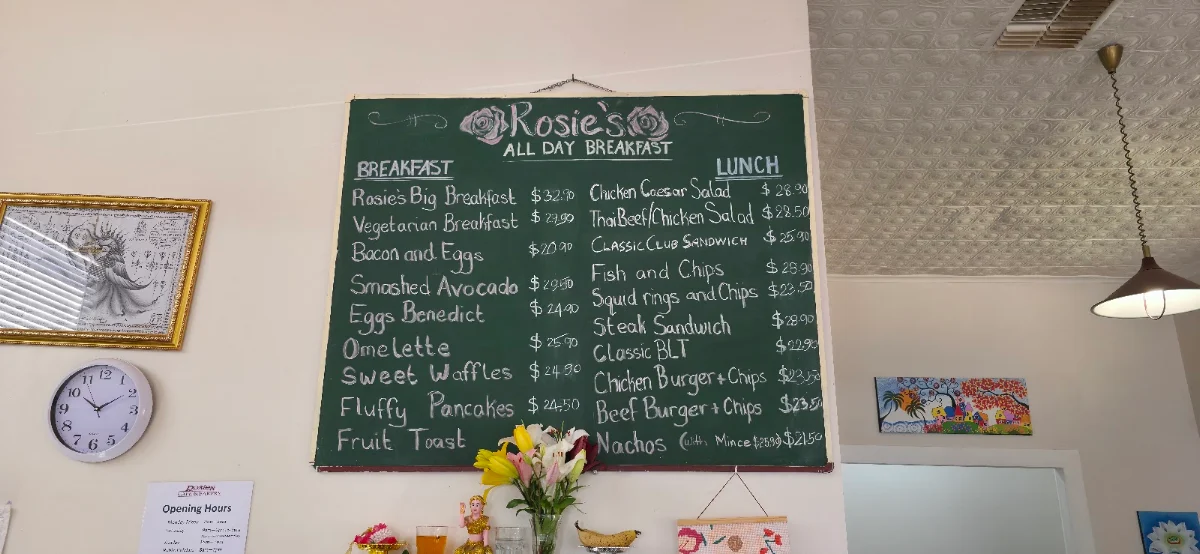 Rosie's
ALL DAY BREAKFAST
BREAKFAST
Rosie's Big Breakfast $32.90
Vegetarian Breakfast $29.90
Bacon and Eggs $20.90
Smashed Avocado $29.50
Eggs Benedict $24.90
Omelette $25.90
Sweet Waffles $24.90
Fluffy Pancakes $24.50
Fruit Toast
LUNCH
Chicken Caesar Salad $28.90
Thai Beef/Chicken Salad $28.50
CLASSIC CLUB SANDWICH $25.90
Fish and Chips $28.90
Squid rings and Chips $23.50
Steak Sandwich $28.90
Classic BLT $22.90
Chicken Burger + Chips $23.50
Beef Burger + Chips $23.50
Nachos (with Mince $25.90) $21.50
12
1
2
3
4
5
6
7
8
9
10
11
Opening Hours